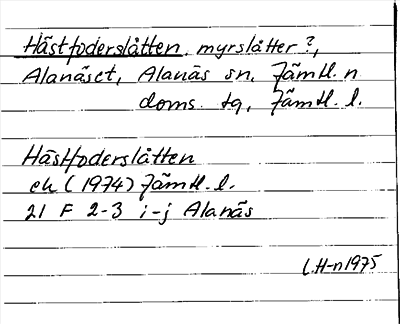 Hästfoderslåtten, myrslåtter?,
Alanäset, Alanäs sn, Jämtl. n
doms. tg, Jämtl. l.
Hästfoderslåtten
ek (1974) Jämtl. l.
21 F 2-3 i-j Alanäs
L.H-n 1975